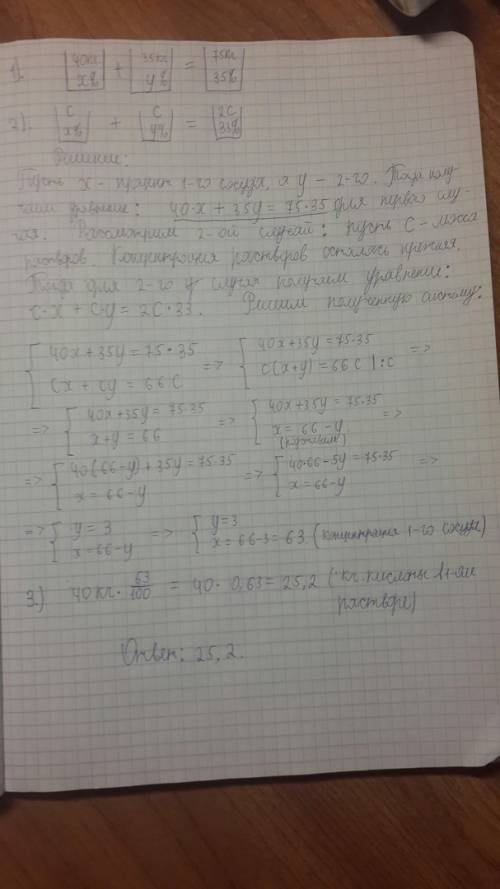 1). |40кг x%| + |35кг y%| = |75кг 35%|
2). |C x%| + |C y%| = |2C 33%|
Решение:
Пусть x - процент 1-го сосуда, а y - 2-го. Тогда полу-
чаем уравнение: 40·x + 35y = 75·35 для первого слу-
чая. Рассмотрим 2-ой случай: пусть C - масса
растворов. Концентрация растворов осталась прежняя.
Тогда для 2-го случая получаем уравнение:
C·x + C·y = 2C·33. Решим полученную систему:
{ 40x+35y = 75·35 Cx + Cy = 66C => { 40x+35y = 75·35 C(x+y) = 66C |:C =>
=> { 40x+35y = 75·35 x+y = 66 => { 40x+35y = 75·35 x = 66-y (подставим) =>
=> { 40(66-y)+35y = 75·35 x = 66-y => { 40·66-5y = 75·35 x = 66-y =>
=> { y = 3 x = 66-y => { y = 3 x = 66-3 = 63 (концентрация 1-го сосуда)
3.) 40кг · 63/100 = 40 · 0,63 = 25,2 (кг. кислоты в 1-ом
растворе)
Ответ: 25,2.